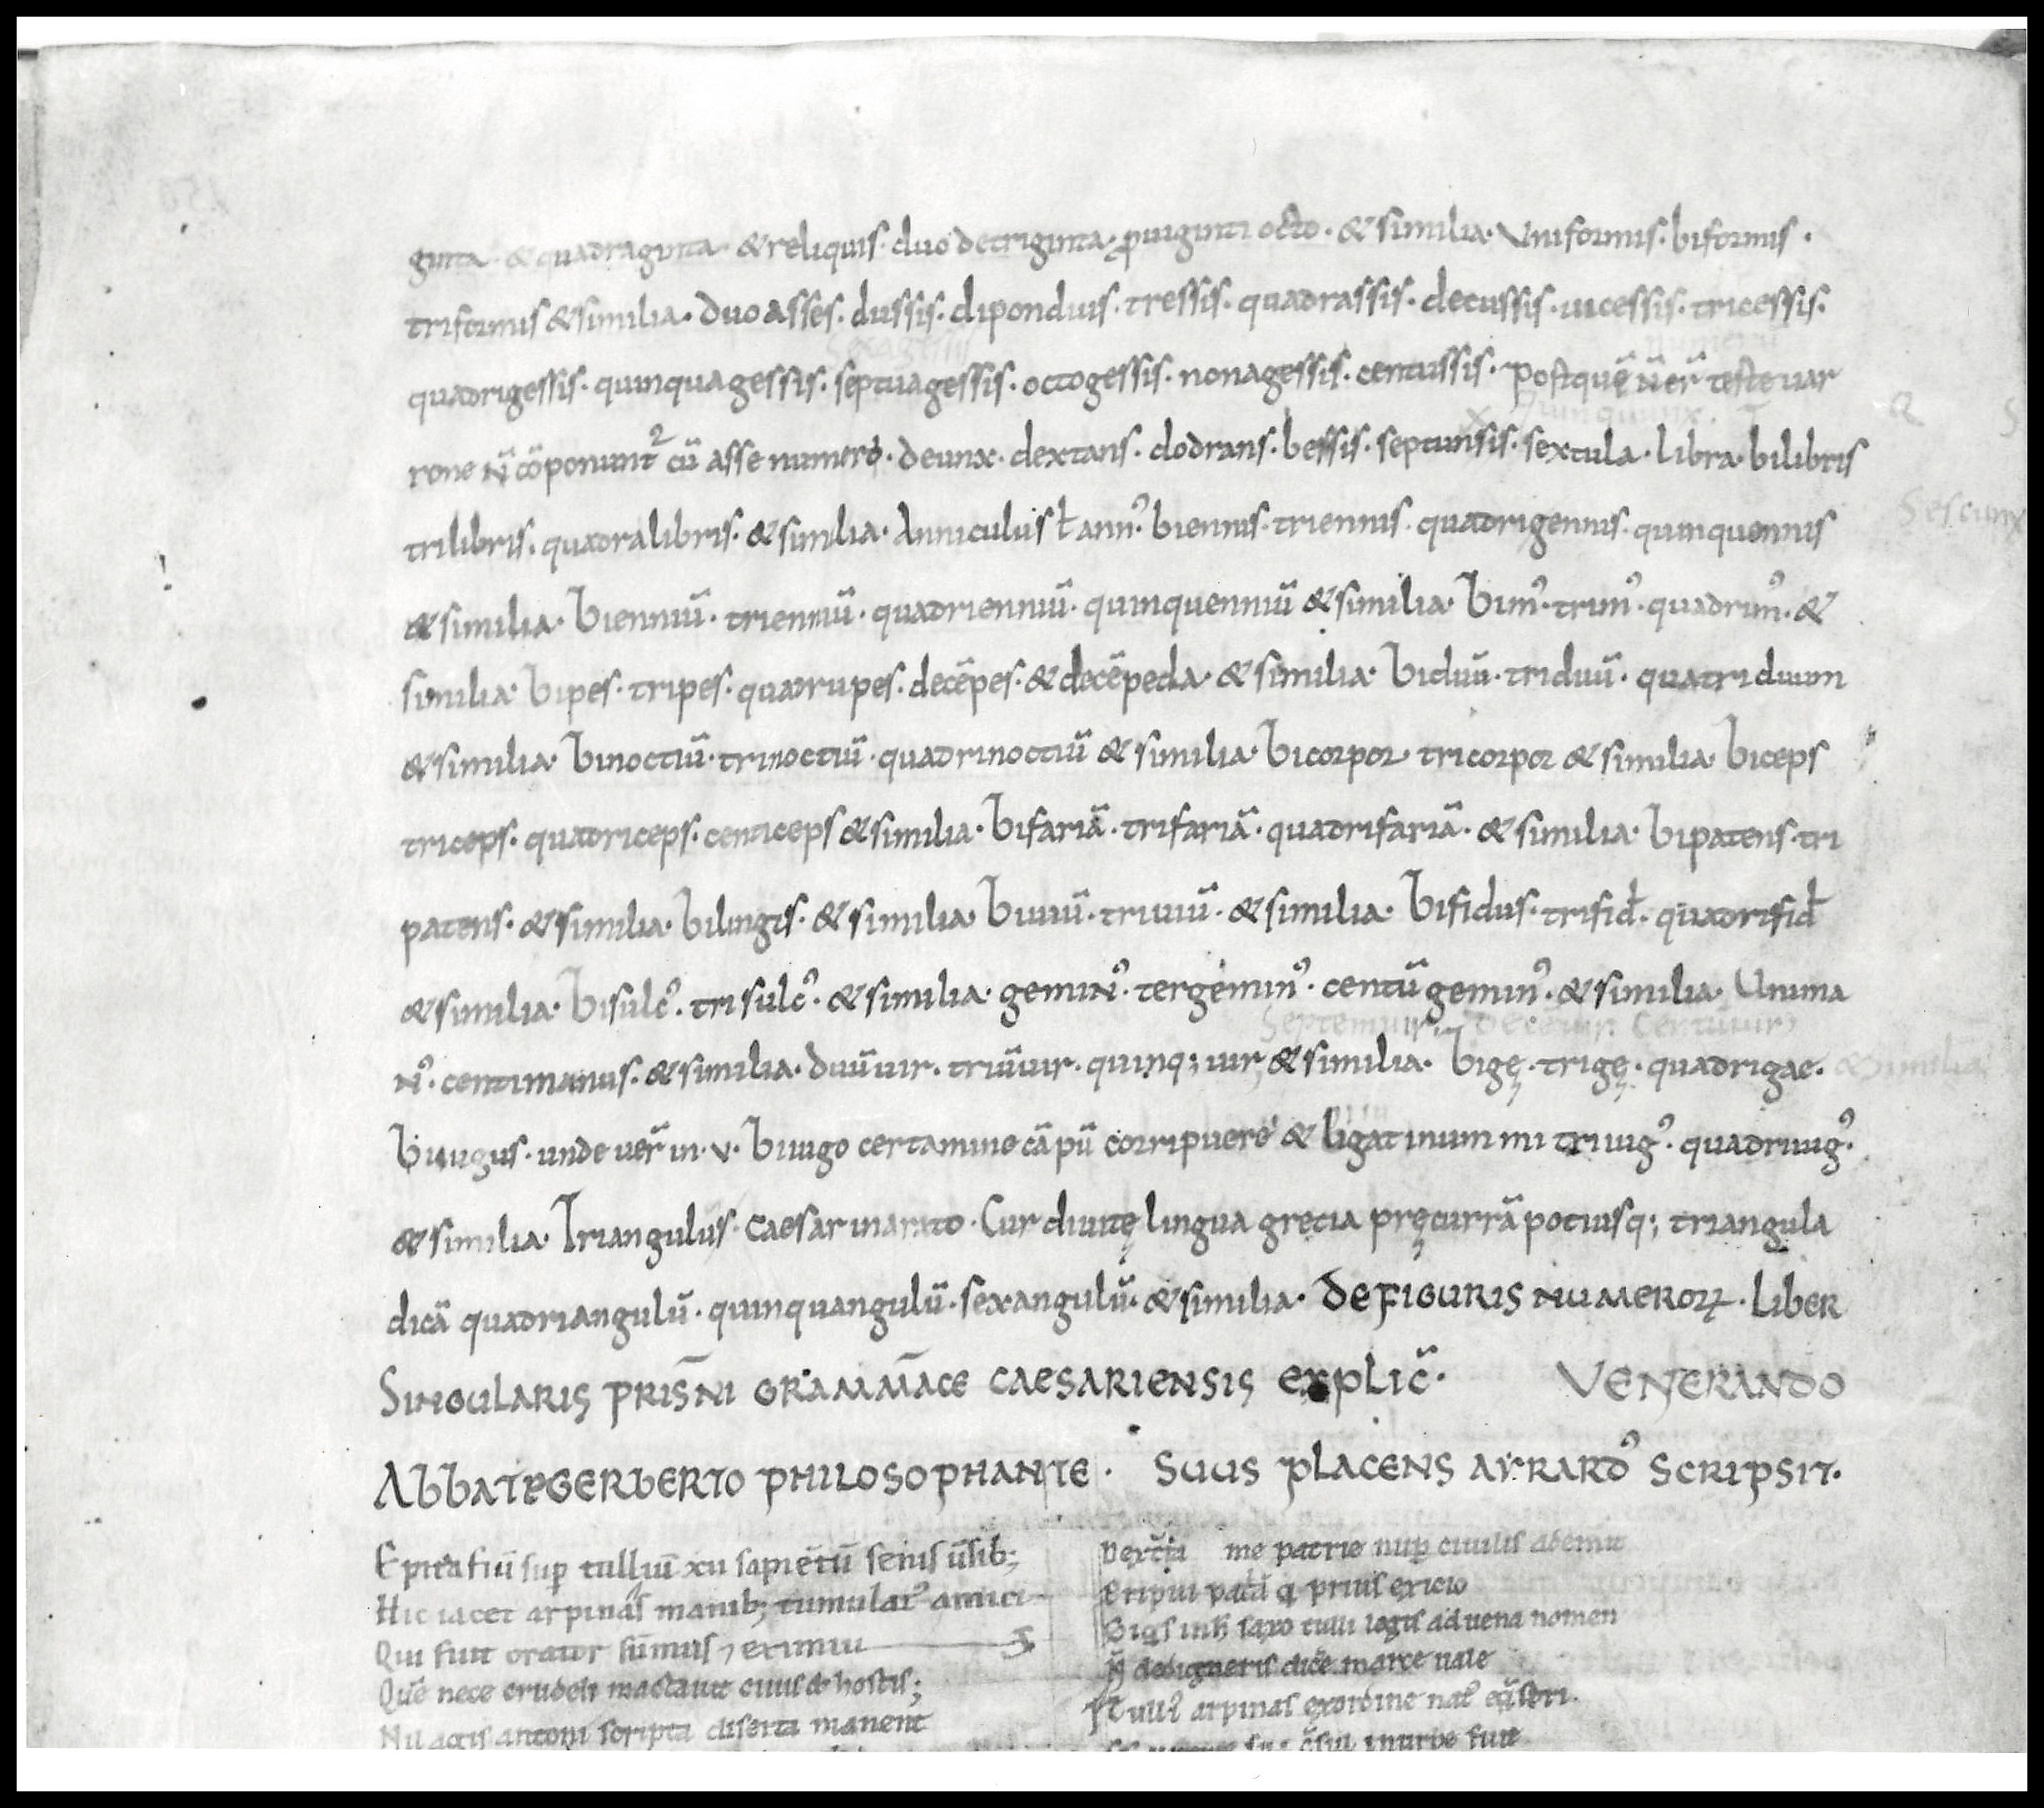 ginta · & quadraginta · & reliquis · duo detriginta · ꝓ uiginti octo · & similia · Vniformis · biformis ·
triformis & similia · duo asses · dussis · dipondius · tressis · quadrassis · decussis · uicessis · tricessis ·
Sexagessis
quadrigessis · quinquagessis · septuagessis · octogessis · nonagessis · centussis · postquē ñ teste uar
rone ñ cōponunt² cū asse numero · deunx · dextans · dodrans · bessis · septunsis · sextula · libra · bilibris
Sescunx
trilibris · quadralibris · & similia · Anniculus ł ann᾿ · biennis · triennis · quadrigennis · quinquennis
& similia · bienniū · trienniū · quadrienniū · quinquenniū & similia · bim᾿ · trim᾿ · quadrim᾿ · &
similia · bipes · tripes · quadrupes · decēpes · & decēpeda · & similia · biduū · triduū · quatriduum
& similia · binoctiū · trinoctiū · quadrinoctiū & similia · bicorpor · tricorpor & similia · biceps
triceps · quadriceps · centiceps & similia · bifariā · trifariā · quadrifariā · & similia · bipatens · tri
patens · & similia · bilinguis · & similia · biuiū · triuiū · & similia · bifidus · trifid̄ · quadrifid̄
& similia · bisulc᾿ · trisulc᾿ · & similia · gemin᾿ · tergemin᾿ · centūgemin᾿ · & similia · Unima
Septemuir · decēuir · centūuir
n᾿ · centimanus · & similia · duūuir · triūuir · quinq; uir & similia · bigę · trigę · quadrigae · & similia
biiugus · unde · in · v · biiugo certamine cāpū corripuere & ligat inum mi triiug᾿ · quadriiug᾿ ·
& similia · Triangulus · caesar in · Cur diuitę lingua grecia pręcurrā potiusq; triangula
dicā quadriangulū · quinquangulū · sexangulū · & similia · DE FIGURIS NUMEROꝜ · LIBER
SINGULARIS PRISÑNI GRAMM̄ACE CAESARIENSIS EXPLIC̄ · VENERANDO
ABBATE GERBERTO PHILOSOPHANTE · SUUS PLACENS AYRARD᾿ SCRIPSIT ·
Epitafiū suꝑ tulliū xii sapiētū
Hic iacet arpinas manib; tumulat᾿ amici
Qui fuit orator sūmus ⁊ eximiu
Quē nece crudeli mactauit ciuis & hostis;
Nil agis antoni scripta diserta manent
me patrie nuꝑ ciuilis ademit
saxo tulli legis aduena nomen
dedigneris dicē marce uale
Tulli᾿ arpinas